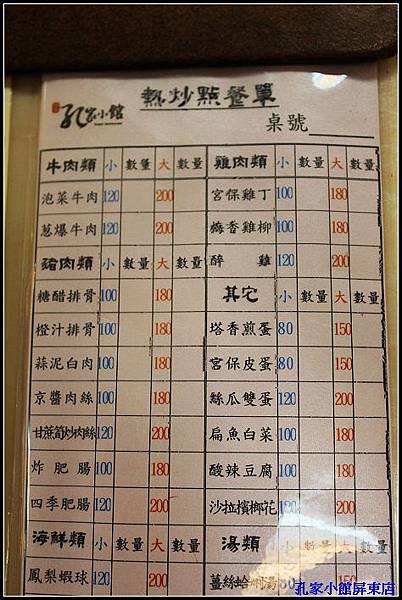 孔家小館 熱炒點餐單
桌號
牛肉類 小 數量 大 數量 雞肉類 小 數量 大 數量
泡菜牛肉 120 200 宮保雞丁 100 180
蔥爆牛肉 120 200 梅香雞柳 100 180
豬肉類 小 數量 大 數量 醉雞 120 200
糖醋排骨 100 180 其它 小 數量 大 數量
橙汁排骨 100 180 塔香煎蛋 80 150
蒜泥白肉 100 180 宮保皮蛋 80 150
京醬肉絲 100 180 絲瓜雙蛋 120 200
甘蔗筍炒肉絲 120 200 扁魚白菜 100 180
炸肥腸 100 180 酸辣豆腐 100 180
四季肥腸 120 200 沙拉檳榔花 120 200
海鮮類 小 數量 大 數量 湯類 小 數量 大 數量
鳳梨蝦球 120 200 薑絲蛤蜊湯 80 150
孔家小館屏東店